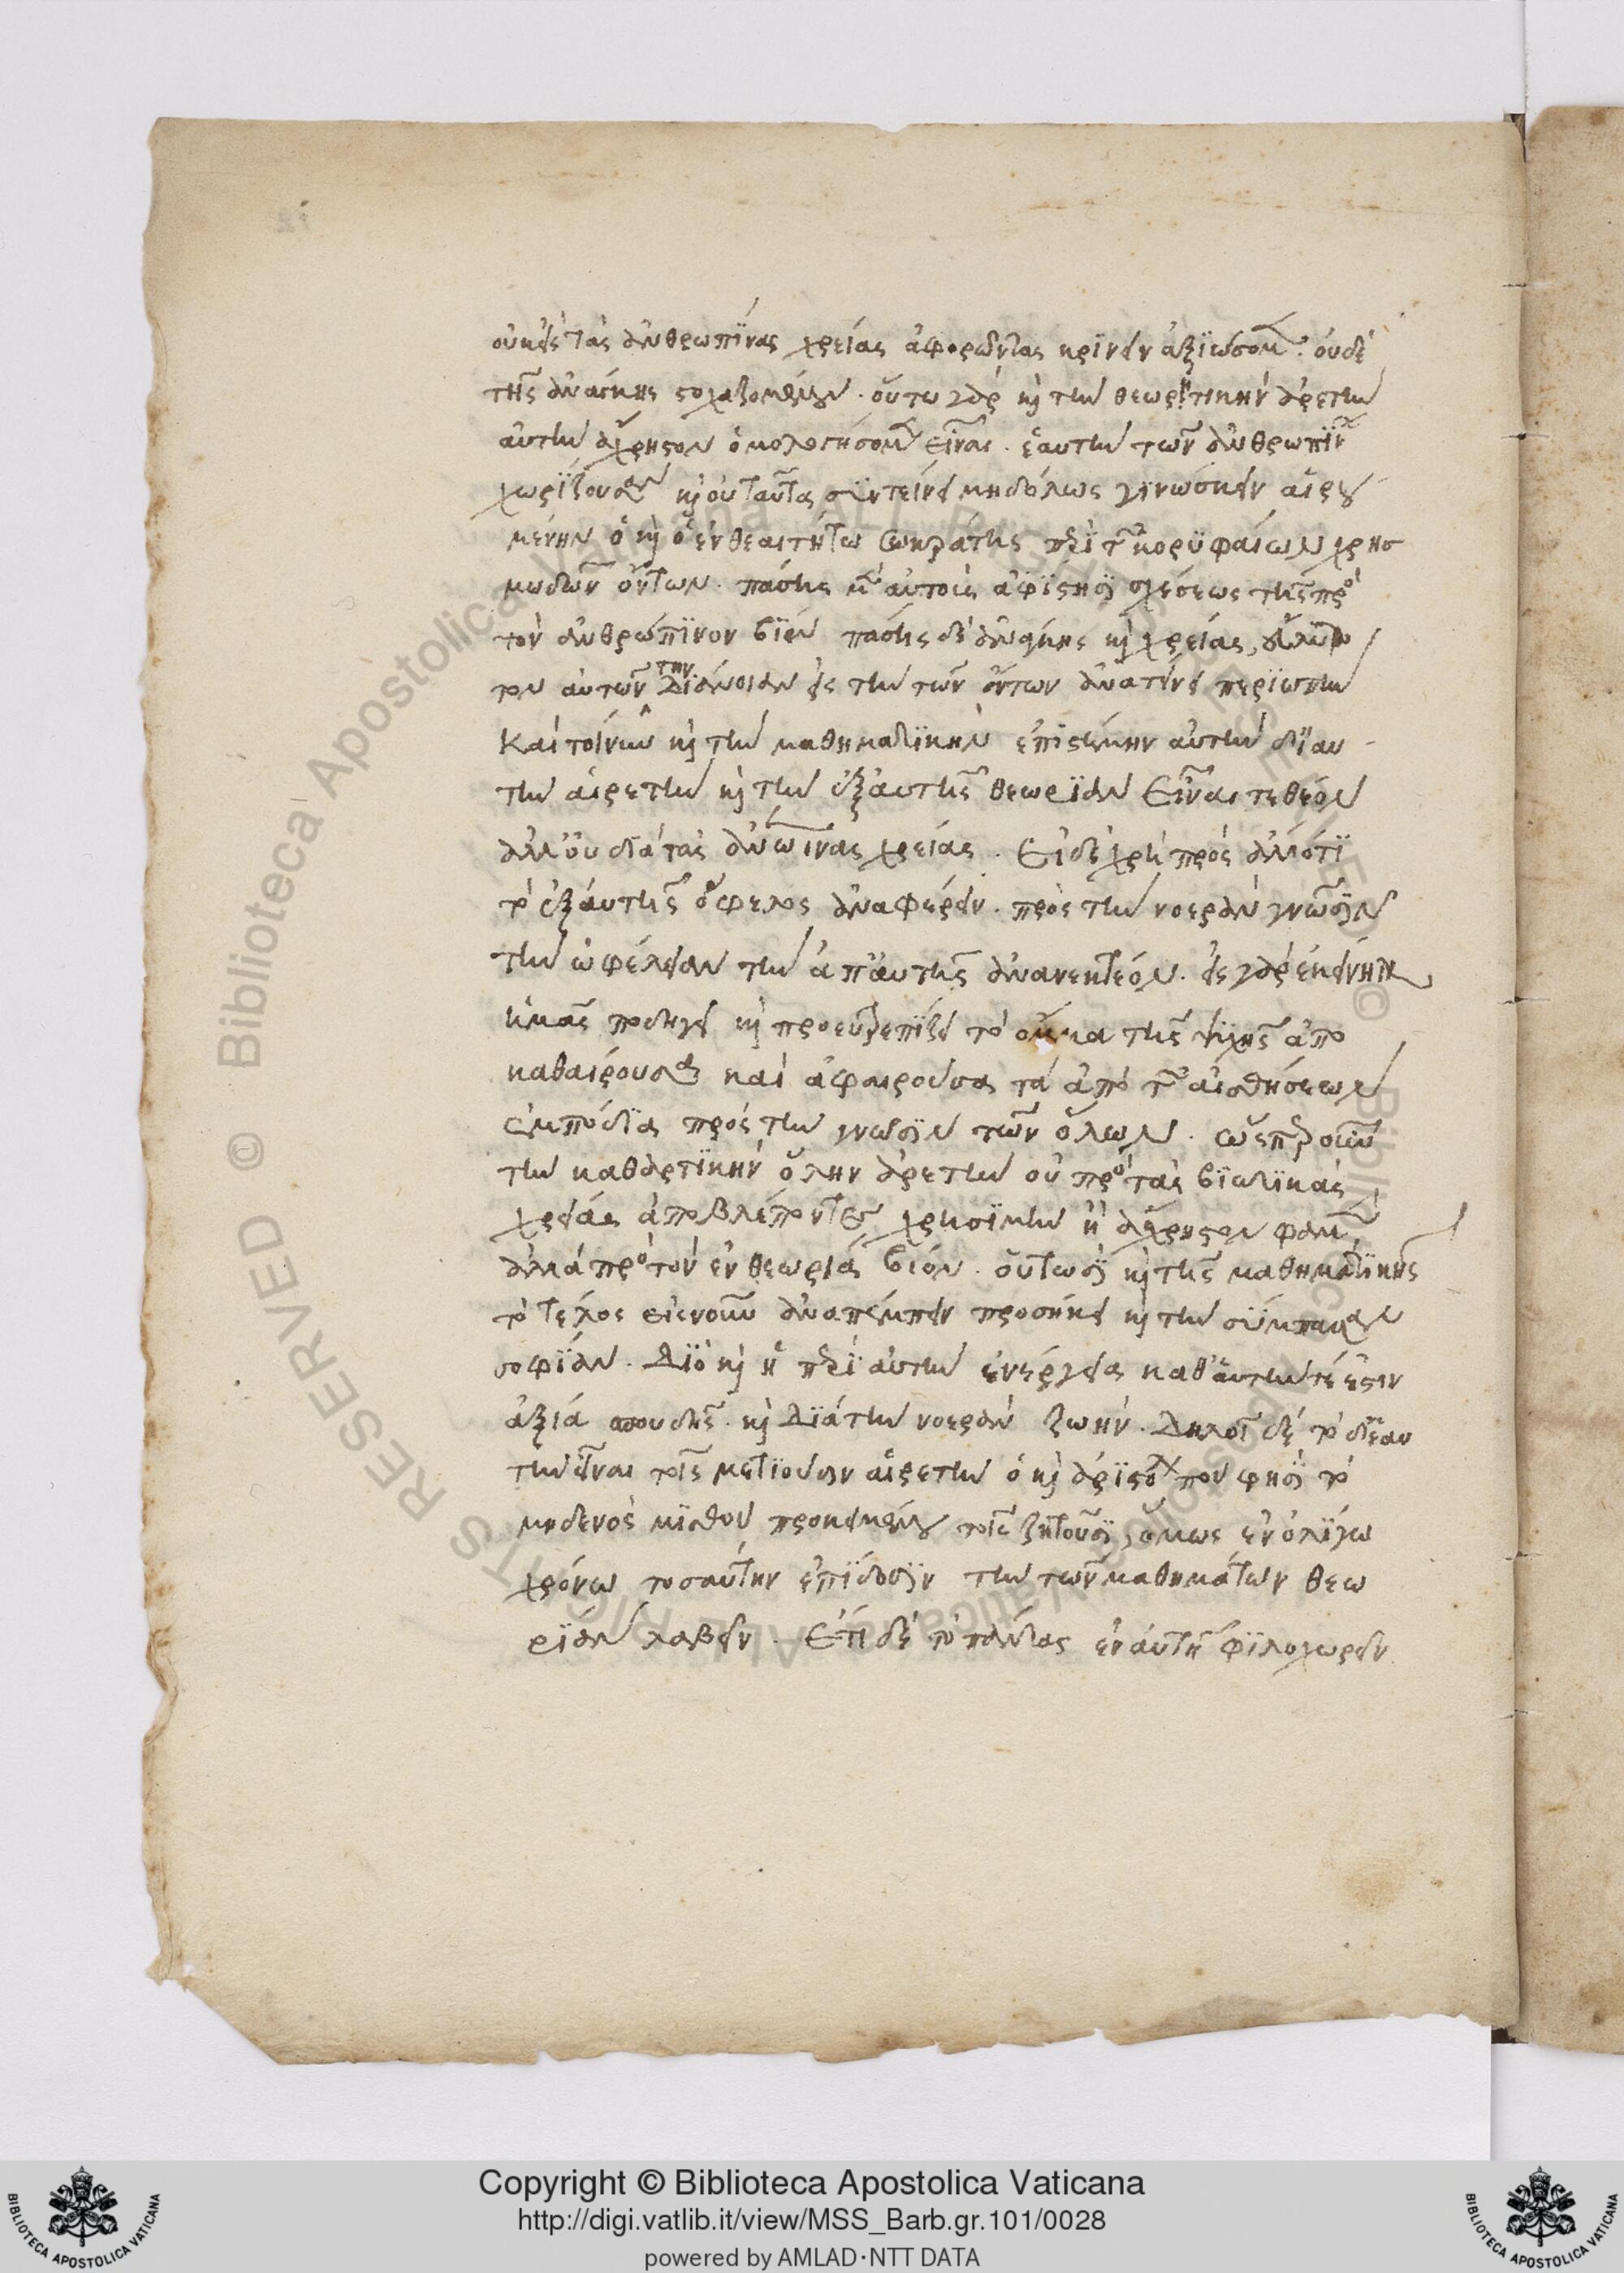 οὐκ εἰς τὰς ἀνθρωπίνας χρείας ἀφορῶντας κρίνειν ἀξιώσομ. οὐδὲ
τῆς ἀνάγκης στοχαζομένου. οὕτω γὰρ καὶ τὴν θεωρητικὴν ἀρετὴν
αὐτὴν ἄχρηστον ὁμολογήσομ εἶναι. ἑαυτὴν τῶν ἀνθρωπίν
χωρίζουσαν καὶ οὐ ταῦτα συντείνει μηδόλως γινώσκειν αἱρου
μένην ὃ καὶ ὁ ἐν θεαιτήτω σωκράτης περὶ τῶν κορυφαίων χρησ
μωδῶν ὄντων. πάσης μὲν αὐτοὺς ἀφίστησι σχέσεως τῆς πρὸ
τὸν ἀνθρώπινον βίον πάσης δὲ ἀνάγκης καὶ χρείας,
τον αὐτῶν τὴν διάνοιαν εἰς τὴν τῶν ὄντων ἀνατείνει περιωπὴν
Καὶ τοίνυν καὶ τὴν μαθηματικὴν ἐπιστήμην αὐτὴν δι αυ
τὴν αἱρετὴν καὶ τὴν ἐξ αὐτῆς θεωρίαν εἶναι τεθέον
ἀλλ' οὐ διὰ τὰς ἀνωίνας χρείας. Εἰ δὲ χρὴ πρὸς ἄλλό τι
τὸ ἐξ αὐτῆς ὄφελος ἀναφέρειν. πρὸς τὴν νοερὰν γνῶσιν
τὴν ὠφέλειαν τὴν ἀπ' αὐτῆς ἀνανεκτέον. εἰς γὰρ ἐκείνην
ἡμᾶς ποδηγεῖ καὶ προευτρεπίζει τὸ ὄμμα τῆς ψυχῆς ἀπο
καθαίρουσα καὶ ἀφαιροῦσα τὰ ἀπὸ τῶν αἰσθήσεων
ἐμπόδια πρὸς τὴν γνῶσιν τῶν ὅλων. ὥσπερ οὖν
τὴν καθαρτικὴν ὅλην ἀρετὴν οὐ πρὸ τὰς βιωτικὰς
χρείας ἀποβλέποντες χρησίμην ἢ ἄχρηστον φαμ,
ἀλλὰ πρὸ τὸν ἐν θεωρίᾳ βίον. οὕτωσι καὶ τῆς μαθηματικῆς
τὸ τέλος εἰς νοῦν ἀναπέμπειν προσήκει καὶ τὴν σύμπασαν
σοφίαν. Διὸ καὶ ἡ περὶ αὐτὴν ἐνέργεια καθ' αὑτὴν τέ ἐστιν
ἀξία σπουδῆς. καὶ διὰ τὴν νοερὰν ζωήν. Δηλοῖ δὲ τὸ δι ἑαυ
τὴν εἶναι τοῖς μετιοῦσιν αἱρετὴν ὃ καὶ ἀριστοτ που φησὶ τὸ
μηδενὸς μισθοῦ προκειμένου τοῖς ζητοῦσι, ὅμως ἐν ὀλίγω
χρόνω τοσαύτην ἐπίδοσιν τὴν τῶν μαθημάτων θεω
ρίαν λαβεῖν. Ἔτι δὲ τὸ πάντας ἐν αὐτῆ φιλοχωρεῖν
Copyright © Biblioteca Apostolica Vaticana
http://digi.vatlib.it/view/MSS_Barb.gr.101/0028
powered by AMLAD·NTT DATA